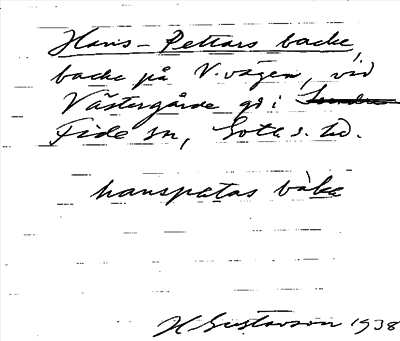 Hans-Pettars backe,
backe på V. vägen, vid
Västergårde gd i
Fide sn, Gotl. s. hd.
hanspetas bàke
H Gustavson 1938